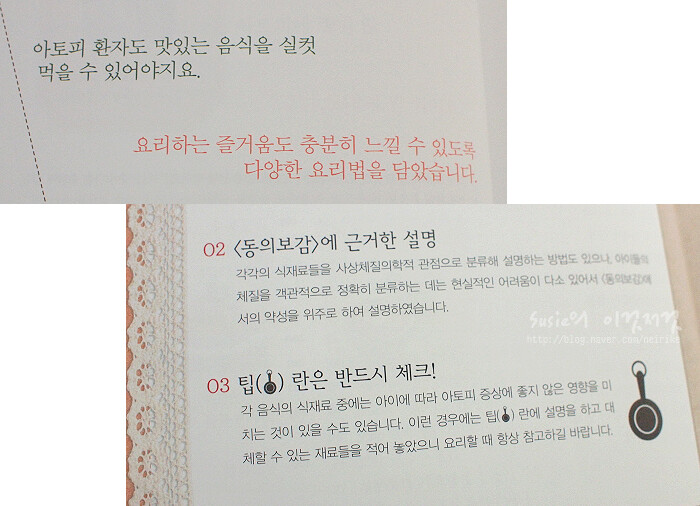 아토피 환자도 맛있는 음식을 실컷
먹을 수 있어야지요.
요리하는 즐거움도 충분히 느낄 수 있도록
다양한 요리법을 담았습니다.
02 〈동의보감〉에 근거한 설명
각각의 식재료들을 사상체질의학적 관점으로 분류해 설명하는 방법도 있으나, 아이들의
체질을 객관적으로 정확히 분류하는 데는 현실적인 어려움이 다소 있어서 〈동의보감〉에
서의 약성을 위주로 하여 설명하였습니다.
Susie의 이것저것
03 팁( ) 란은 반드시 체크!
각 음식의 식재료 중에는 아이에 따라 아토피 증상에 좋지 않은 영향을 미
치는 것이 있을 수도 있습니다. 이런 경우에는 팁( ) 란에 설명을 하고 대
체할 수 있는 재료들을 적어 놓았으니 요리할 때 항상 참고하길 바랍니다.